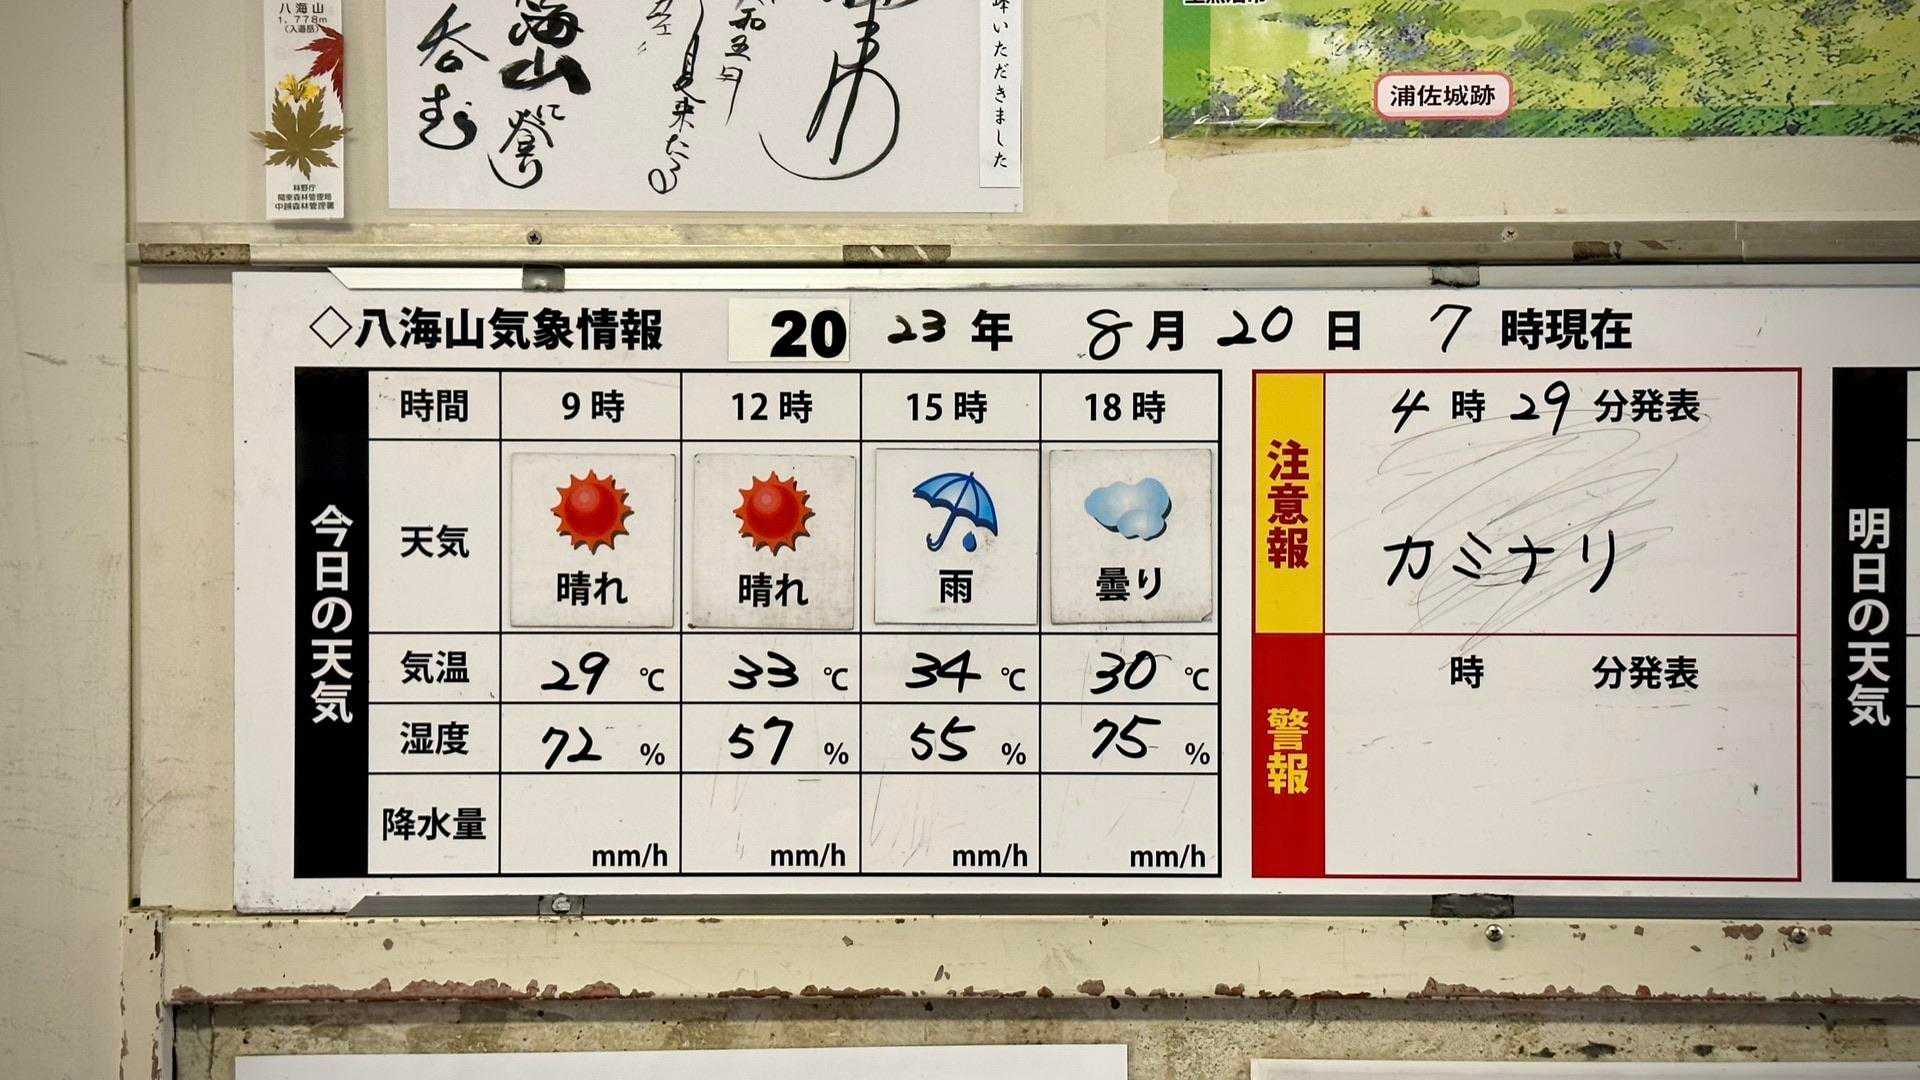 八海山
1,778m
(入道岳)
林野庁
関東森林管理局
中越森林管理署
海山
呑む
来たる
峰いただきました
浦佐城跡
◇八海山気象情報 2023年 8月20日 7時現在
今日の天気
時間 9時 12時 15時 18時
天気 晴れ 晴れ 雨 曇り
気温 29℃ 33℃ 34℃ 30℃
湿度 72% 57% 55% 75%
降水量 mm/h mm/h mm/h mm/h
注意報
4時29分発表
カミナリ
警報
時 分発表
明日の天気